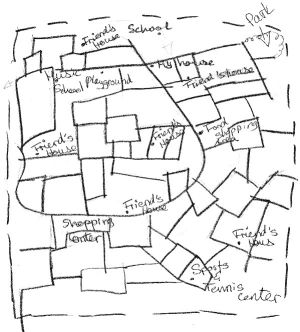 Park
Friend's
house
School
My house
Music
School
Playground
Friend's house
Friend's
House
Friend's
House
Food
shopping
area
Friend's
House
Shopping
Center
Friend's
Hous
Sports
Tennis
center